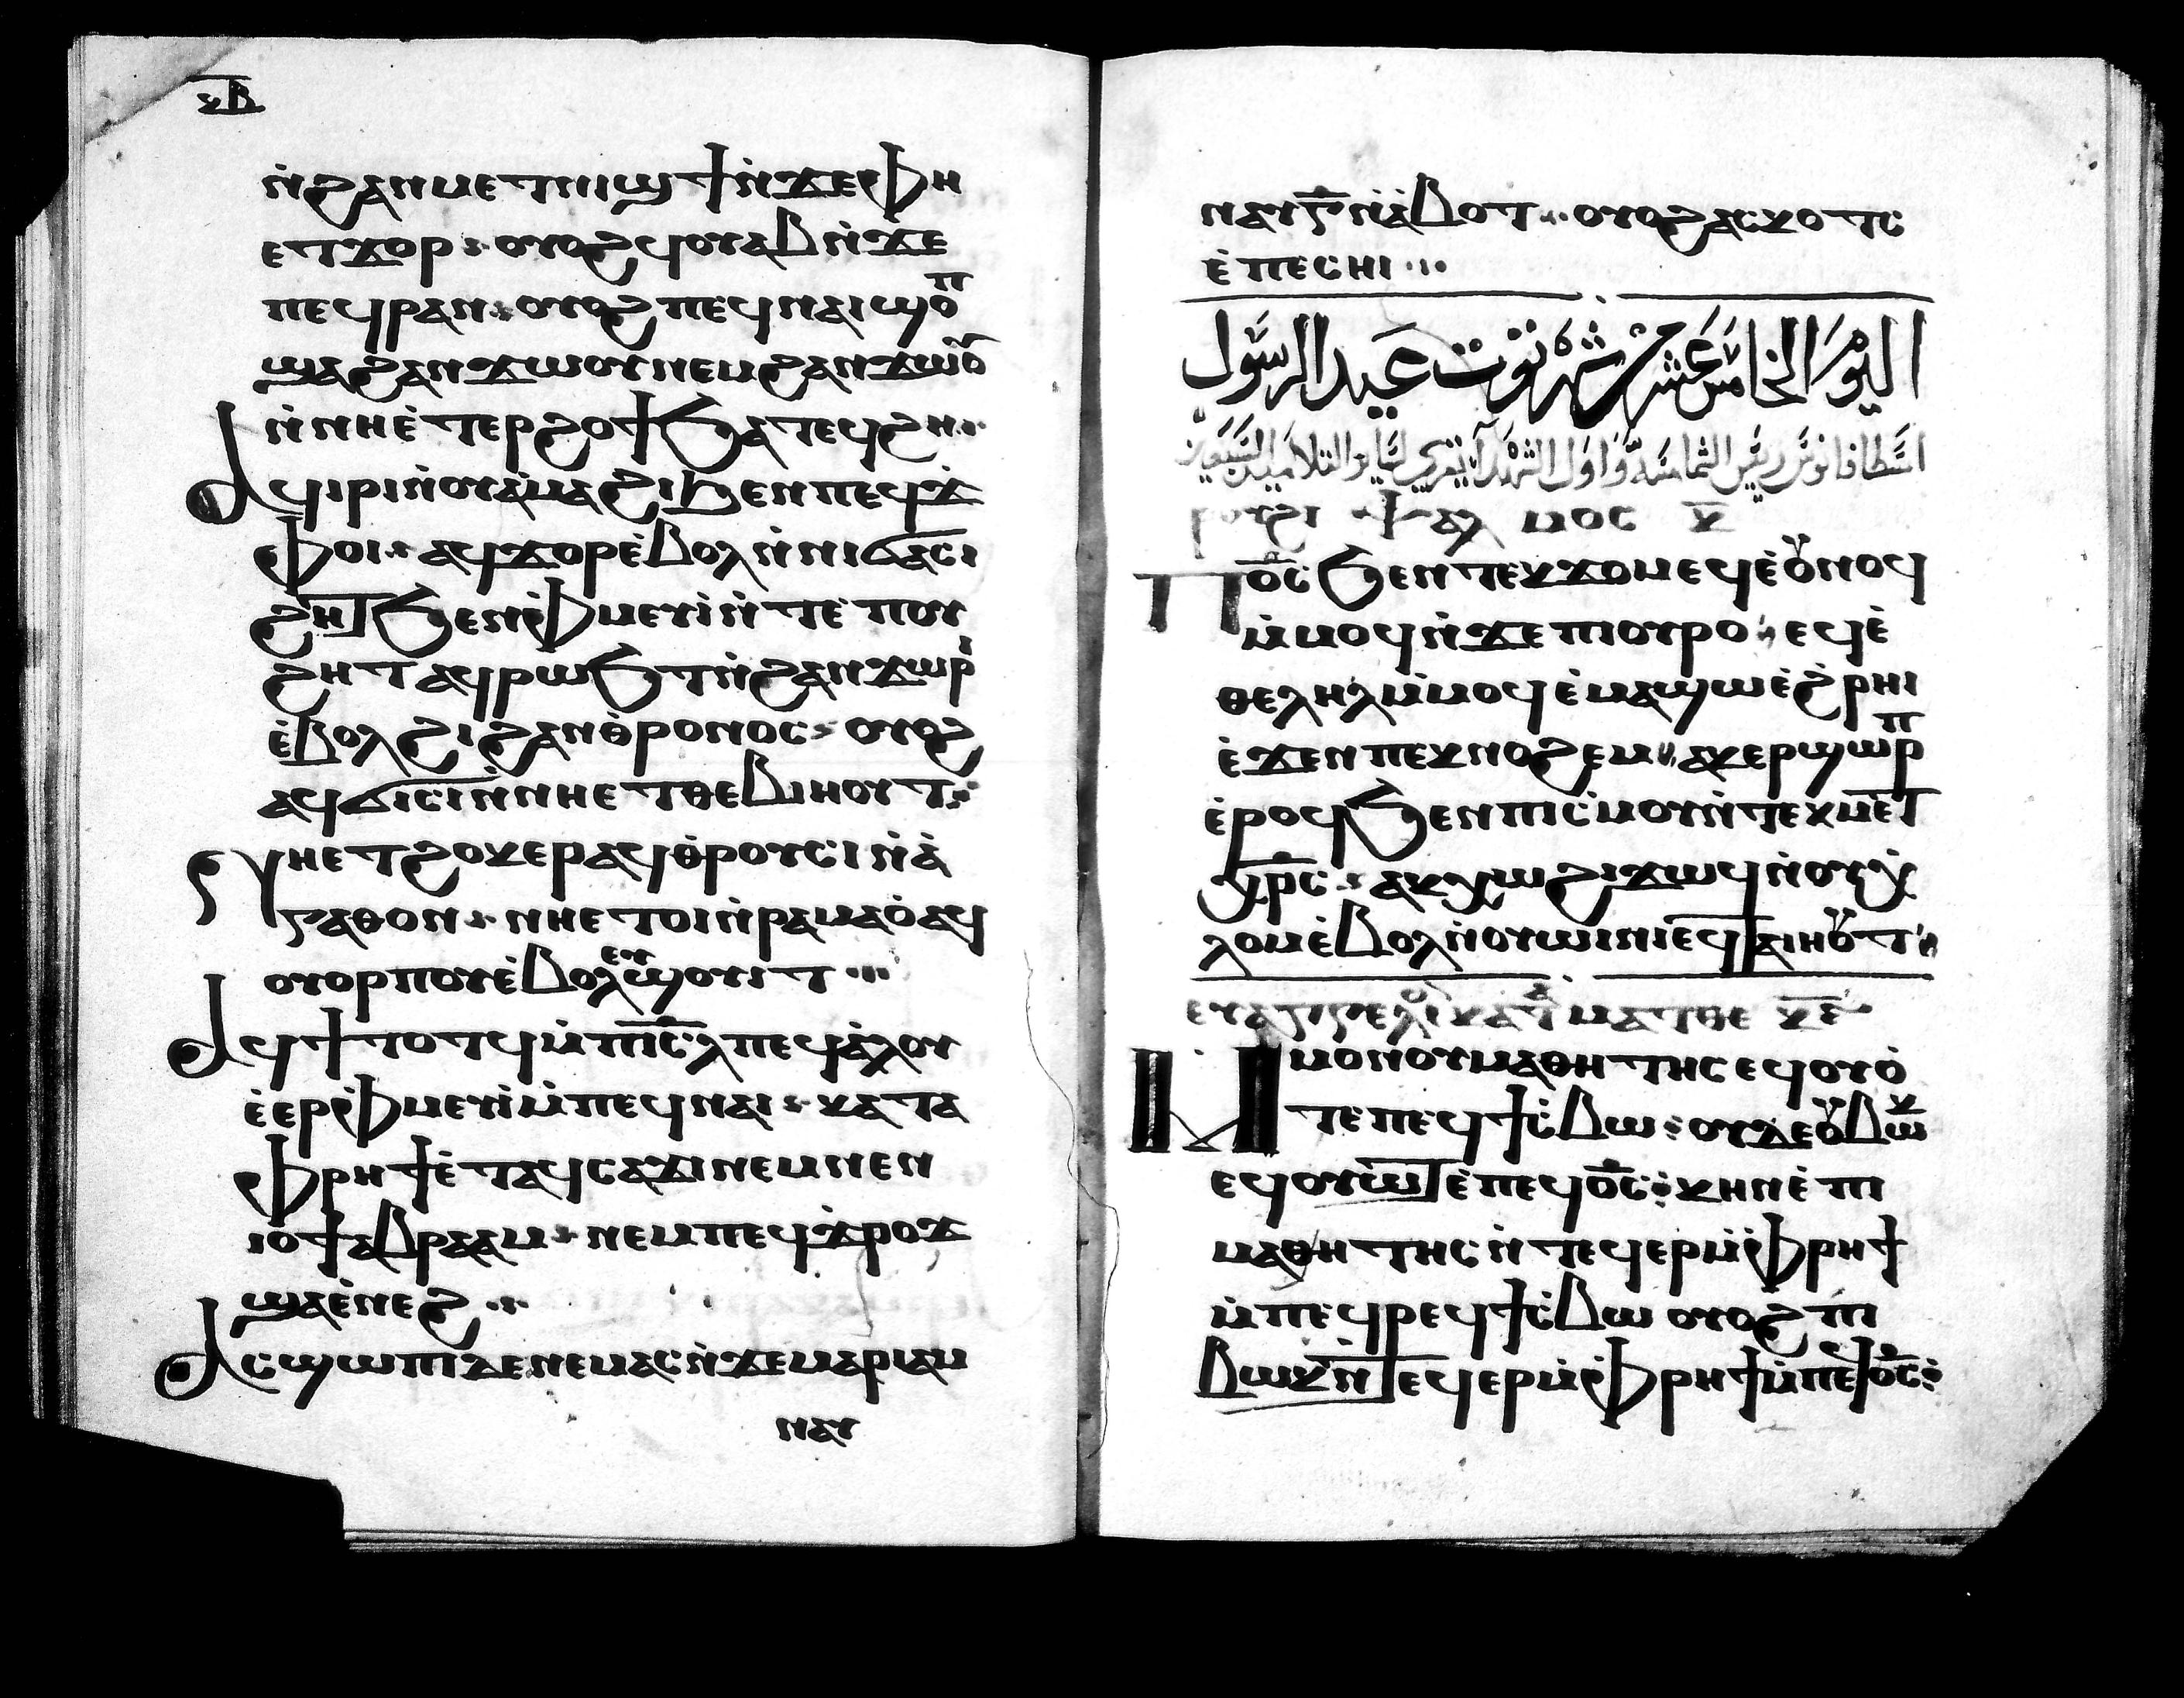 ⲕⲃ
ⲛ̀ϩⲁⲛⲙⲉⲧⲛⲓϣϯ ⲛ̀ϫⲉ ⲫⲏ
ⲉⲧϫⲟⲣ ⲟⲩⲟϩ ϥⲟⲩⲁⲃ ⲛ̀ϫⲉ
ⲡⲉϥⲣⲁⲛ ⲟⲩⲟϩ ⲡⲉϥⲛⲁⲓ ϣⲟⲡ
ϣⲁ ϩⲁⲛϫⲱⲟⲩ ⲛⲉⲙ ϩⲁⲛϫⲱⲟ̅
ⲛ̀ⲛⲏⲉ̀ⲧⲉⲣϩⲟϯ ϧⲁⲧⲉϥϩⲏ
ⲁϥⲓⲣⲓ ⲛ̀ⲟⲩⲁ̀ⲙⲁϩⲓ ϧⲉⲛ ⲡⲉϥϫ̀
ⲫⲟⲓ ⲁϥϫⲟⲣ ⲉ̀ⲃⲟⲗ ⲛ̀ⲛⲓϭⲁⲥⲓ
ϩⲏⲧ ϧⲉⲛ ⲫⲙⲉⲩⲓ̀ ⲛ̀ⲧⲉ ⲡⲟⲩ
ϩⲏⲧ ⲁϥⲣⲱϧⲧ ⲛ̀ϩⲁⲛϫⲱⲣⲓ
ⲉ̀ⲃⲟⲗϩⲓ ϩⲁⲛⲑ̀ⲣⲟⲛⲟⲥ ⲟⲩⲟϩ
ⲁϥϭⲓⲥⲓ ⲛ̀ⲛⲏⲉⲧⲑⲉⲃⲓⲏⲟⲩⲧ
ⲛⲏⲉⲧϩⲟⲕⲉⲣ ⲁϥⲑ̀ⲣⲟⲩⲥⲓ ⲛ̀ⲁ̀
ⲅⲁⲑⲟⲛ ⲛⲏⲉⲧⲟⲓ ⲛ̀ⲣⲁⲙⲁⲟ̀ ⲁϥ
ⲟⲩⲟⲣⲡⲟⲩ ⲉ̀ⲃⲟⲗ ⲉⲩϣⲟⲩⲓⲧ
ⲁϥϯⲧⲟⲧϥ ⲙ̀ⲡⲓⲥ̅ⲗ ⲡⲉϥⲁ̀ⲗⲟⲩ
ⲉ̀ⲉⲣⲫⲙⲉⲩⲓ̀ ⲙ̀ⲡⲉϥⲛⲁⲓ ⲕⲁⲧⲁ
ⲫⲣⲏϯ ⲉ̀ⲧⲁϥⲥⲁϫⲓ ⲛⲉⲙ ⲛⲉⲛ
ⲓⲟϯ ⲁⲃⲣⲁⲁⲙ ⲛⲉⲙ ⲡⲉϥϫ̀ⲣⲟϫ
ϣⲁ ⲉ̀ⲛⲉϩ
ⲁⲥϣⲱⲡⲓ ⲇⲉ ⲛⲉⲙⲁⲥ ⲛ̀ϫⲉ ⲙⲁⲣⲓⲁⲙ
ⲛⲁⲩ
ⲛⲁⲩ ⲅ̅ ⲛ̀ⲁ̀ⲃⲟⲧ ⲟⲩⲟϩ ⲁⲥⲕⲟⲧⲥ
ⲉ̀ⲡⲉⲥⲏⲓ
اليوم الخامس عشر من شهر توت عيد الرسول
اسطافانوس رئيس الشمامسه واول الشهدآ يقري لساير التلاميذ السبعين
ⲣⲟⲩϩⲓ ⲯⲁⲗⲙⲟⲥ ⲕ̅
ⲡϭⲟⲓⲥ ϧⲉⲛ ⲧⲉⲕϫⲟⲙ ⲉϥⲉ̀ⲟⲩⲛⲟϥ
ⲙ̀ⲙⲟϥ ⲛ̀ϫⲉ ⲡⲓⲟⲩⲣⲟ ⲉϥⲉ̀
ⲑⲉⲗⲏⲗ ⲙ̀ⲙⲟϥ ⲉ̀ⲙⲁϣⲱ ⲉ̀ϩ̀ⲣⲏⲓ
ⲉ̀ϫⲉⲛ ⲡⲉⲕⲛⲟϩⲉⲙ ⲁⲕⲉⲣϣⲱⲣⲡ
ⲉ̀ⲣⲟϥ ϧⲉⲛ ⲡⲓⲥ̀ⲙⲟⲩ ⲛ̀ⲧⲉⲕⲙⲉⲧ
ⲭⲣ̅ⲥ ⲁⲕⲭⲱ ϩⲓϫⲱϥ ⲛ̀ⲟⲩⲭ̀
ⲗⲟⲙ ⲉ̀ⲃⲟⲗ ⲛ̀ⲟⲩⲱⲓⲛⲓ ⲉϥⲧⲁⲓⲏⲟⲩⲧ
ⲉⲩⲁⲅⲅⲉⲗⲓⲟ ⲕⲁⲧⲁ ⲙⲁⲧⲑⲉ ⲕⲉ̅
ⲙ̀ⲙⲟⲛ ⲟⲩⲙⲁⲑⲏⲧⲏⲥ ⲉϥⲟⲩⲟ̀
ⲧⲉ ⲡⲉϥϯⲥ̀ⲃⲱ ⲟⲩⲇⲉ ⲟⲩⲃⲱⲕ
ⲉϥⲟⲩⲱⲧ ⲉ̀ⲡⲉϥⲟ̅ⲥ ⲕⲏⲛ ⲉ̀ⲡⲓ
ⲙⲁⲑⲏⲧⲏⲥ ⲛ̀ⲧⲉϥⲉⲣ ⲙ̀ⲫⲣⲏϯ
ⲙ̀ⲡⲉϥⲣⲉϥϯⲥ̀ⲃⲱ ⲟⲩⲟϩ ⲡⲓ
ⲃⲱⲕ ⲛ̀ⲧⲉϥⲉⲣ ⲙ̀ⲫⲣⲏϯ ⲙ̀ⲡⲉϥⲟ̅ⲥ